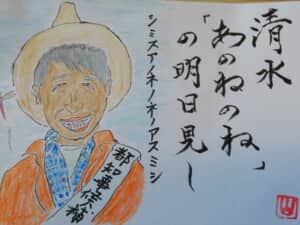 清水
「あのねのね」
の明日見し
シミズアノネノネノアスミシ
都知事候補